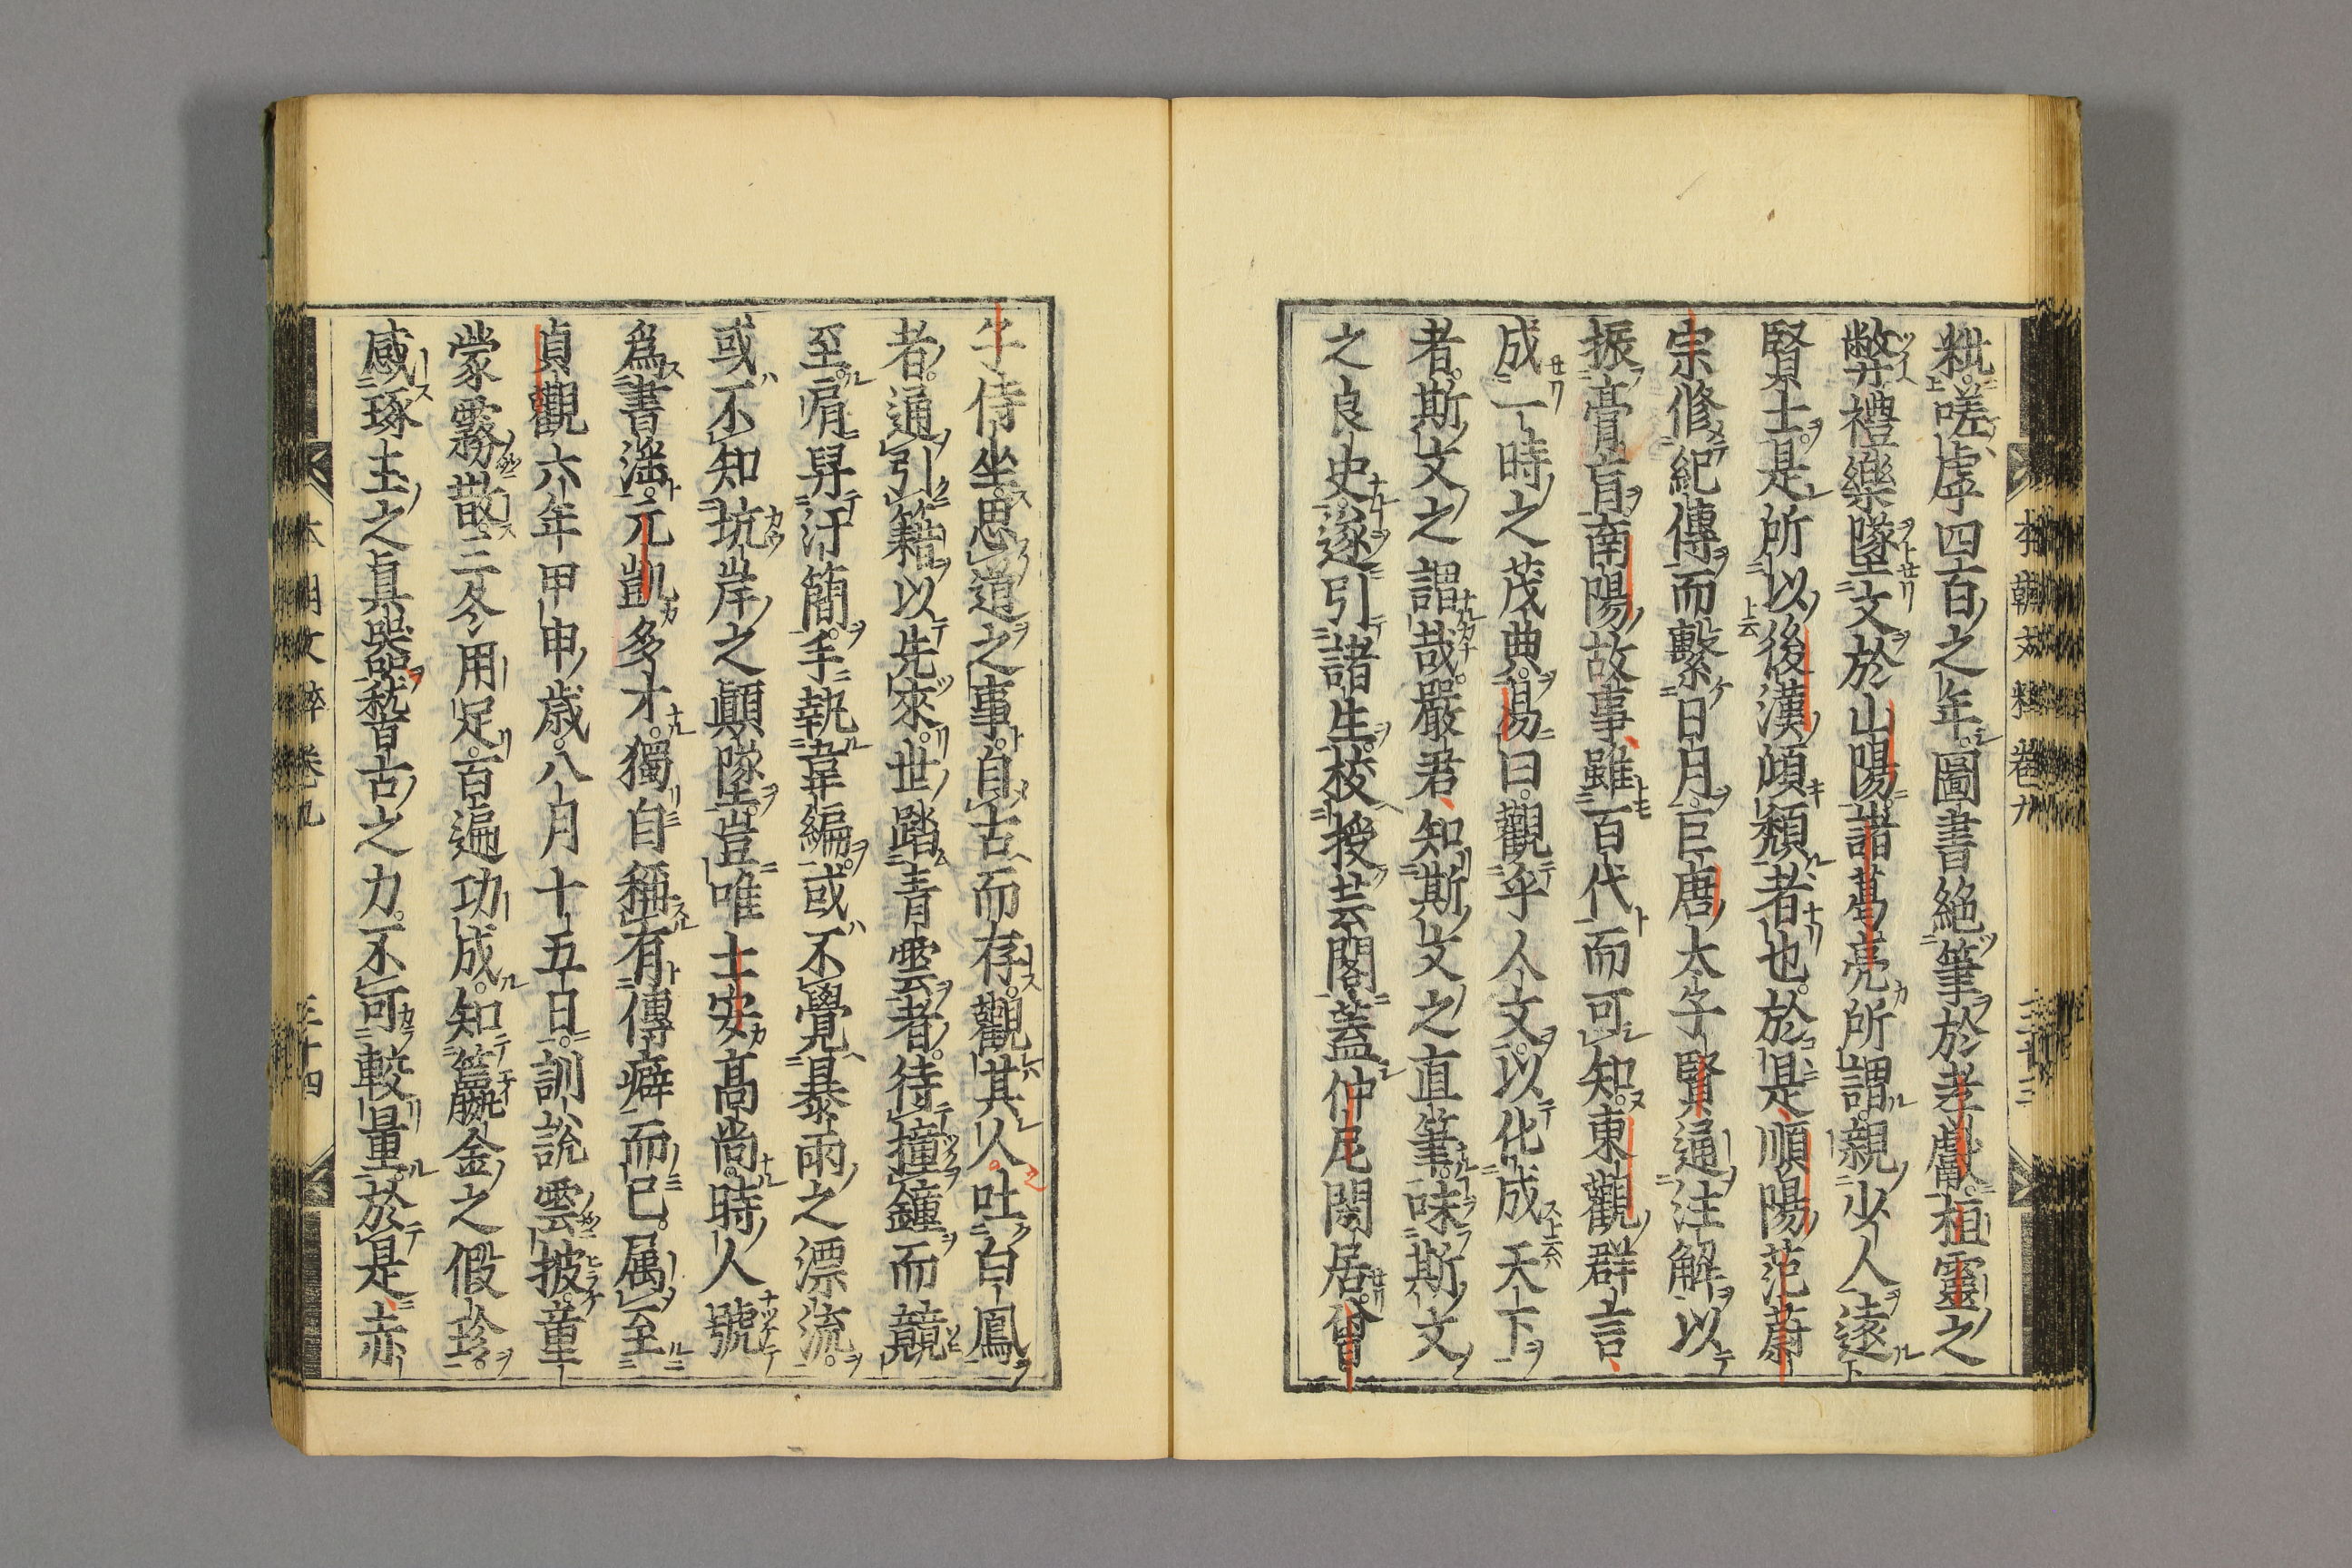 粃嗟虖四百之年圖書絶筆於孝獻祖靈之
弊禮樂墜文於山陽諸葛亮所謂親少人遠
賢士是所以後漢傾頽者也於是順陽范蔚
宗修紀傳而繫日月巨唐太子賢通注解以
振膏肓南陽故事雖百代而可知東觀群言
成一時之茂典易曰觀乎人文以化成天下
者斯文之謂哉嚴君知斯文之直筆味斯文
之良史遂引諸生挍授芸閣蓋仲尼閑居曾
本朝文粹卷九 三十三
子侍坐思道之事自古而存觀其人吐白鳳
者通引籍以先來世踏青雲者待撞鐘而競
至肩舁汗簡手執韋編或不覺暴雨之漂流
或不知坑岸之顚墜豈唯士安高尚時人號
爲書滛元凱多才獨自稱有傳癖而已属至
貞觀六年甲申歳八月十五日訓説雲披童
蒙霧散三冬用足百遍功成知籯金之假珍
感琢玉之眞器嵆古之力不可較量於是赤
本朝文粹卷九 三十四